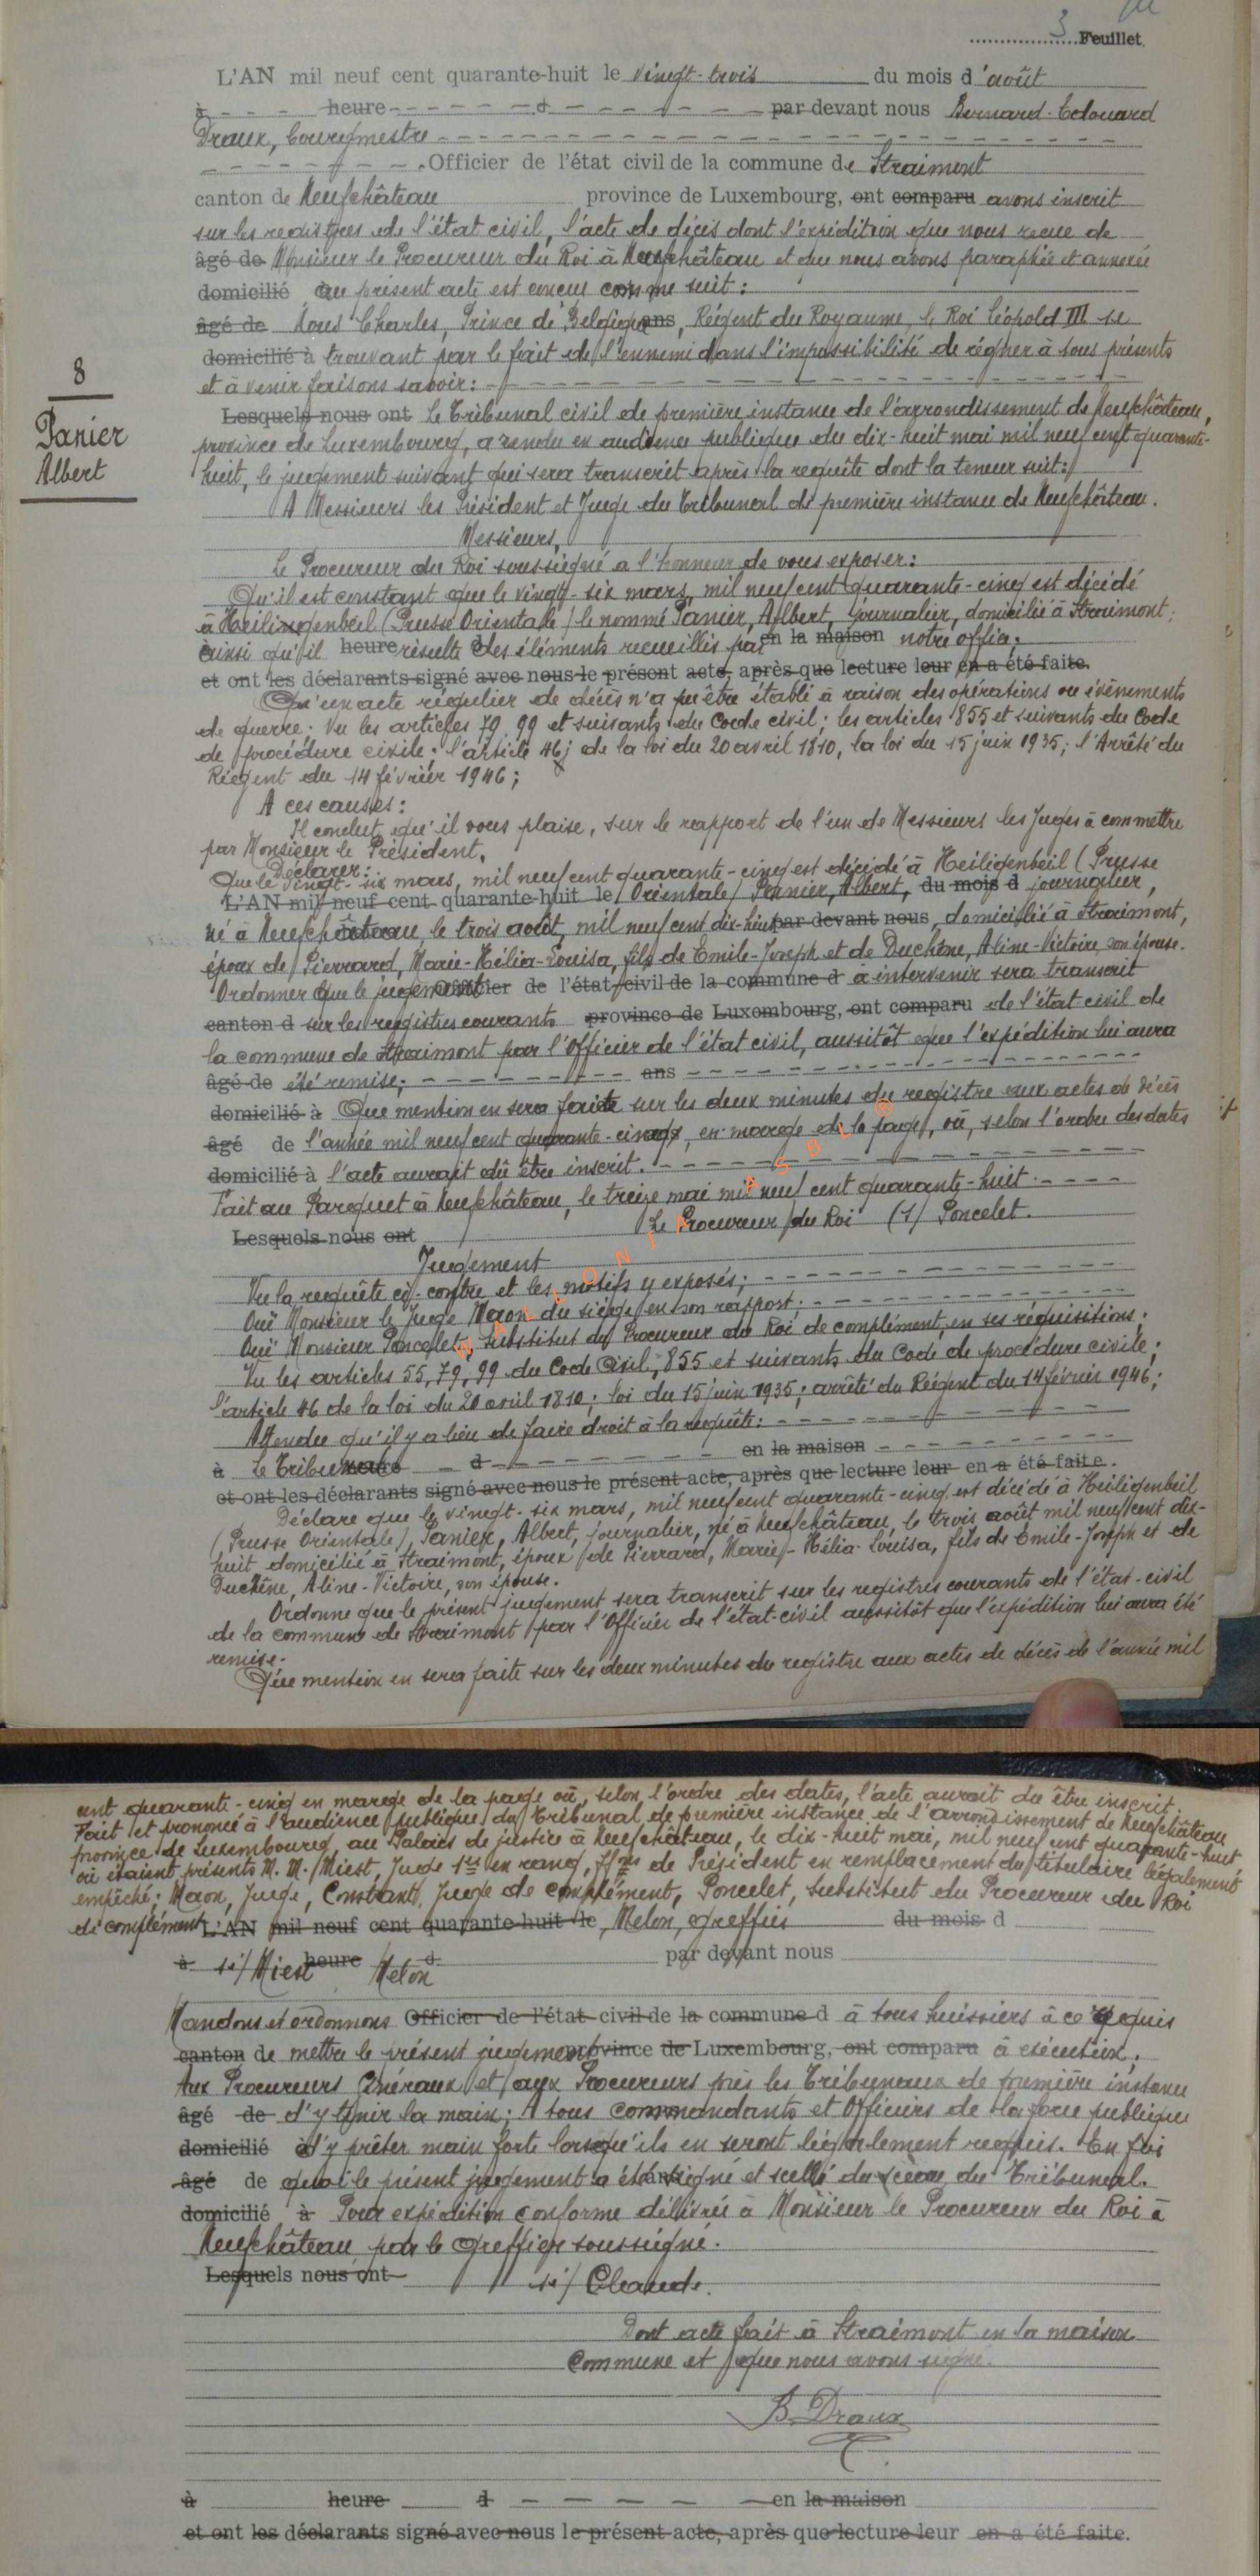 3 Feuillet.
L'AN mil neuf cent quarante-huit le vingt-trois du mois d'août
à heure d par devant nous Bernard-Edouard
Draux, bourgmestre
Officier de l'état civil de la commune de Straimont
canton de Neufchâteau province de Luxembourg, ont comparu avons inscrit
sur les registres de l'état civil, l'acte de décès dont l'expédition que nous reçue de
âgé de Monsieur le Procureur du Roi à Neufchâteau et que nous avons paraphée et annexée
domicilié au présent acte est conçu comme suit :
âgé de Nous Charles, Prince de Belgique ans, Régent du Royaume, le Roi Léopold III se
domicilié à trouvant par le fait de l'ennemi dans l'impossibilité de régner à tous présents
et à venir faisons savoir :
8
Panier
Albert
Lesquels nous ont Le Tribunal civil de première instance de l'arrondissement de Neufchâteau,
province de Luxembourg, a rendu en audience publique du dix-huit mai mil neuf cent quarante-
huit, le jugement suivant qui sera transcrit après la requête dont la teneur suit :
A Messieurs les Président et Juge du Tribunal de première instance de Neufchâteau.
Messieurs,
Le Procureur du Roi soussigné a l'honneur de vous exposer :
Qu'il est constant que le vingt-six mars, mil neuf cent quarante-cinq est décédé
à Heiligenbeil (Prusse Orientale) le nommé Panier, Albert, journalier, domicilié à Straimont ;
ainsi qu'il heure résulte des éléments recueillis par en la maison notre office ;
et ont les déclarants signé avec nous le présent acte, après que lecture leur en a été faite.
Qu'un acte régulier de décès n'a pu être établi à raison des opérations ou évènements
de guerre. Vu les articles 79, 99 et suivants du Code civil ; les articles 855 et suivants du Code
de procédure civile ; l'article 46 ; de la loi du 20 avril 1810, la loi du 15 juin 1935 ; l'Arrêté du
Régent du 14 février 1946 ;
A ces causes :
Il conclut qu'il vous plaise, sur le rapport de l'un de Messieurs les Juges à commettre
par Monsieur le Président.
Déclarer :
Que le vingt-six mars, mil neuf cent quarante-cinq est décédé à Heiligenbeil (Prusse
L'AN mil neuf cent quarante-huit le Orientale) Panier, Albert, du mois d journalier,
né à Neufchâteau, le trois août, mil neuf cent dix-huit par devant nous, domicilié à Straimont,
époux de Pierrard, Marie-Hélia-Louisa, fils de Emile-Joseph et de Duchêne, Aline-Victoire, son épouse.
Ordonner que le jugement Officier de l'état civil de la commune d à intervenir sera transcrit
canton d sur les registres courants province de Luxembourg, ont comparu de l'état civil de
la commune de Straimont par l'Officier de l'état civil, aussitôt que l'expédition lui aura
âgé de été remise ; ans
domicilié à Que mention en sera faite sur les deux minutes du registre aux actes de décès
âgé de l'année mil neuf cent quarante-cinq, en marge de la page, où, selon l'ordre des dates
domicilié à l'acte aurait dû être inscrit.
Fait au Parquet à Neufchâteau, le treize mai mil neuf cent quarante-huit.
Lesquels nous ont Le Procureur du Roi (s) Poncelet.
Jugement
Vu la requête ci-contre et les motifs y exposés ;
Ouï Monsieur le Juge Maon du siège en son rapport.
Ouï Monsieur Poncelet, substitut du Procureur du Roi de complément, en ses réquisitions ;
Vu les articles 55, 79, 99 du Code Civil, 855 et suivants du Code de procédure civile ;
l'article 46 de la loi du 20 avril 1810 ; loi du 15 juin 1935 ; arrêté du Régent du 14 février 1946 ;
Attendu qu'il y a lieu de faire droit à la requête :
à Le Tribunal heure d en la maison
et ont les déclarants signé avec nous le présent acte, après que lecture leur en a été faite.
Déclare que le vingt-six mars, mil neuf cent quarante-cinq, est décédé à Heiligenbeil
(Prusse Orientale), Panier, Albert, journalier, né à Neufchâteau, le trois août mil neuf cent dix-
huit domicilié à Straimont, époux de Pierrard, Marie-Hélia-Louisa, fils de Emile-Joseph et de
Duchêne, Aline-Victoire, son épouse.
Ordonne que le présent jugement sera transcrit sur les registres courants de l'état-civil
de la commune de Straimont par l'Officier de l'état-civil aussitôt que l'expédition lui aura été
remise.
Que mention en sera faite sur les deux minutes du registre aux actes de décès de l'année mil
WALLONIA ASBL ®
cent quarante-cinq en marge de la page où, selon l'ordre des dates, l'acte aurait dû être inscrit.
Fait et prononcé à l'audience publique du Tribunal de première instance de l'arrondissement de Neufchâteau
province de Luxembourg, au Palais de justice à Neufchâteau, le dix-huit mai, mil neuf cent quarante-huit
où étaient présents M. M. Miest, Juge 1er en rang, ff ons de Président en remplacement du titulaire légalement
empêché ; Maon, Juge, Constant, Juge de complément, Poncelet, Substitut du Procureur du Roi
de complément L'AN mil neuf cent quarante-huit le, Melon, greffier du mois d
à si/ Miest heure Melon d par devant nous
Mandons et ordonnons Officier de l'état civil de la commune d à tous huissiers à ce requis
canton de mettre le présent jugement province de Luxembourg, ont comparu à exécution ;
Aux Procureurs Généraux et aux Procureurs près les Tribunaux de première instance
âgé de d'y tenir la main ; A tous commandants et Officiers de la force publique
domicilié à d'y prêter main forte lorsqu'ils en seront légalement requis. En foi
âgé de quoi le présent jugement a été ans signé et scellé du sceau du Tribunal.
domicilié à Pour expédition conforme délivrée à Monsieur le Procureur du Roi à
Neufchâteau par le greffier soussigné.
Lesquels nous ont si/ Claude.
Dont acte fait à Straimont en la maison
Commune et que nous avons signé.
B. Draux
à heure d en la maison
et ont les déclarants signé avec nous le présent acte, après que lecture leur en a été faite.